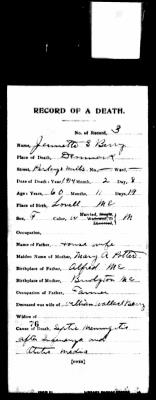 RECORD OF A DEATH.
No. of Record, 3
Name, Jennette E Berry
Place of Death, Denmark
Street, Perleys Mills No. — Ward —
Date of Death: Year, 1914 Month, 2 Day, 8
Age: Years, 60 Months, 11 Days, 19
Place of Birth, Lovell Me
Sex, F Color, W Married, Single, Widowed or Divorced M
Occupation,
Name of Father, House wife
Maiden Name of Mother, Mary A Potter
Birthplace of Father, Alfred Me
Birthplace of Mother, Bridgton Me
Occupation of Father, Farmer
Deceased was wife of William Berry
Widow of
76
Cause of Death, Septic Meningitis
after Influenza and
Otitis media
[OVER]